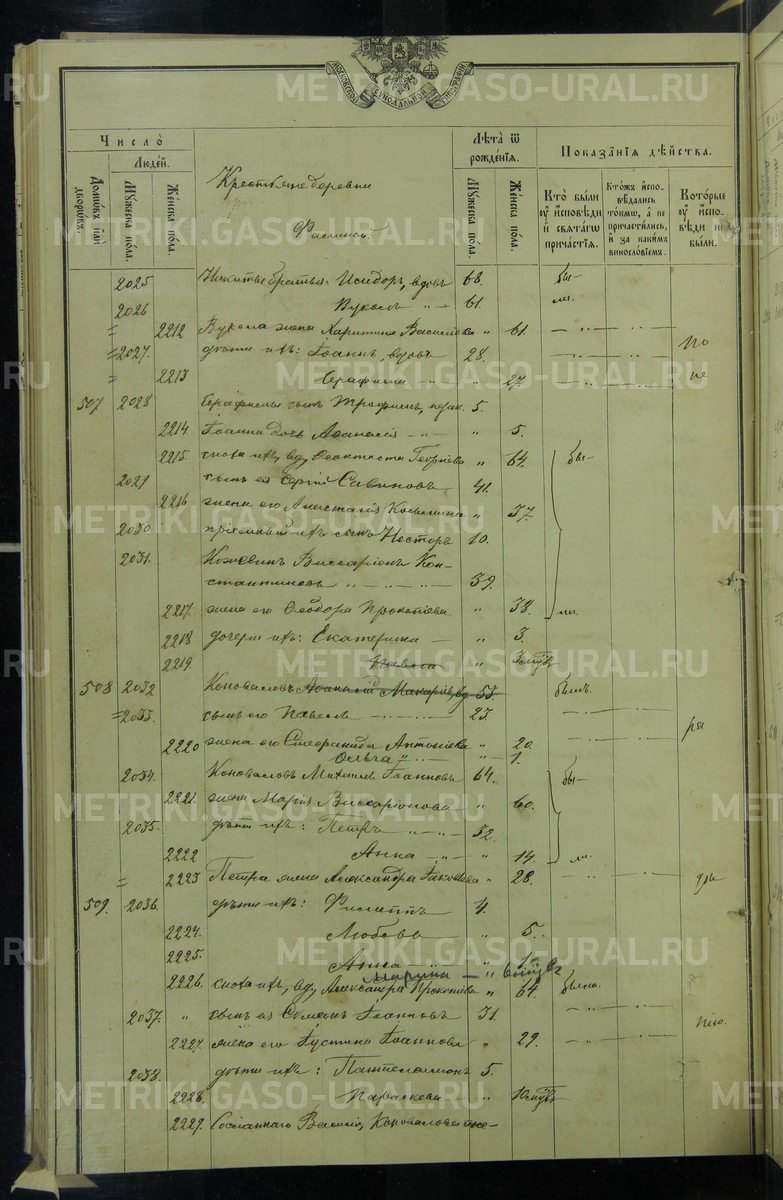 МОСКОВСКОЙ СѴНОДАЛЬНОЙ ТѴПОГРАФІИ
Число̀
Людей.
Домѡвъ или дворѡвъ.
Мꙋжеска пола.
Женска пола.
Лѣта ѿ рожденїѧ.
Мꙋжеска пола.
Женска пола.
Показанїѧ дѣйства.
Кто были ꙋ исповѣди и свѧтагѡ причастїѧ.
Ктожъ исповѣдались токмѡ, а не причастились, и за какимъ винословїемъ.
Которые ꙋ исповѣди не были.
Крестьяне деревни
2025 Никиты братья: Исидоръ, вдовъ 68. бы-
2026 Вуколъ " – 61. ли.
2212 Вукола жена Харитина Василиева " 61. – " – " –
2027. дѣти ихъ: Іоаннъ, вдовъ 28. – " – " – по
2213 Серафима " 27. – " – " – не
507 2028 Серафимы сынъ Трофимъ, незак. 5.
2214. Іоанна дочь Аѳанасія – " – " 5.
2215. сноха ихъ, вд. Ѳеоктиста Георгіева " 64. бы-
2029 сынъ ея Сергій Савиновъ 41.
2216 жена его Анастасія Косьмина " 37.
2030 пріемный ихъ сынъ Несторъ 10.
2031. Виссаріонъ Кон-
стантиновъ " – " – " – 39.
2217. жена его Ѳеодора Прокопіева " 38. ли.
2218 дочери ихъ: Екатерина – " 3.
2219. Павла "
508 2032 Коноваловъ Макаріевъ, вд. 53. былъ.
2033. сынъ его Павелъ – " – " – 23. – " – " –
2220 жена его Стефанида Антоніева " 20. – " – " – ра
Ольга " – " – 1.
2034. Коноваловъ Михаилъ Іоанновъ 64. бы-
2221. жена Марія Виссаріонова – " 60.
2035. дѣти ихъ: Петръ " – " – 32.
2222 Анна – " – " 14. ли.
2223 Петра жена Александра Іаковлева " 28. – " – " –
509. 2036. дѣти ихъ: Филиппъ 4.
2224. Любовь " 5.
2225. Анна " 1.
Марина – "
2226. сноха ихъ, вд. Александра Прокопіева " 64. была.
2037. " сынъ ея Симеонъ Іоанновъ 31. – " – " –
2227. жена его Іустина Іоаннова " 29. – " – " –
2038. дѣти ихъ: Пантелеимонъ 5.
2228. Параскева – "
2229. Сосланнаго Василія Коновалова же-
METRIKI.GASO-URAL.RU